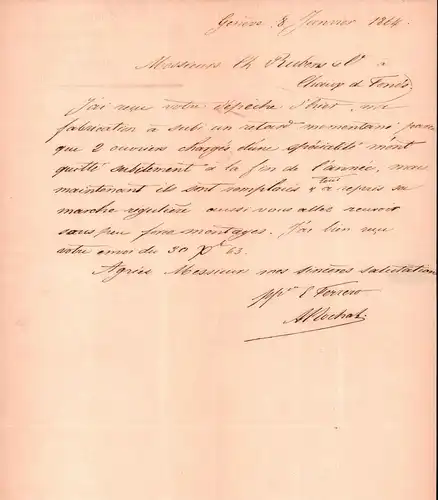 Genève 8 Janvier 1864.
Messieurs Ch Rubens & Cie à
Chaux de Fonds
J'ai reçu votre dépêche d'hier, ma
fabrication a subi un retard momentané parce
que 2 ouvriers chargés d'une spécialité m'ont
quitté subitement à la fin de l'année, mais
maintenant ils sont remplacés & tout a repris sa
marche régulière aussi vous allez recevoir
sous peu fins montages. J'ai bien reçu
votre envoi du 30 Xbre 63.
Agréez Messieurs mes sincères salutations
ppon E Ferrero
A Rochat